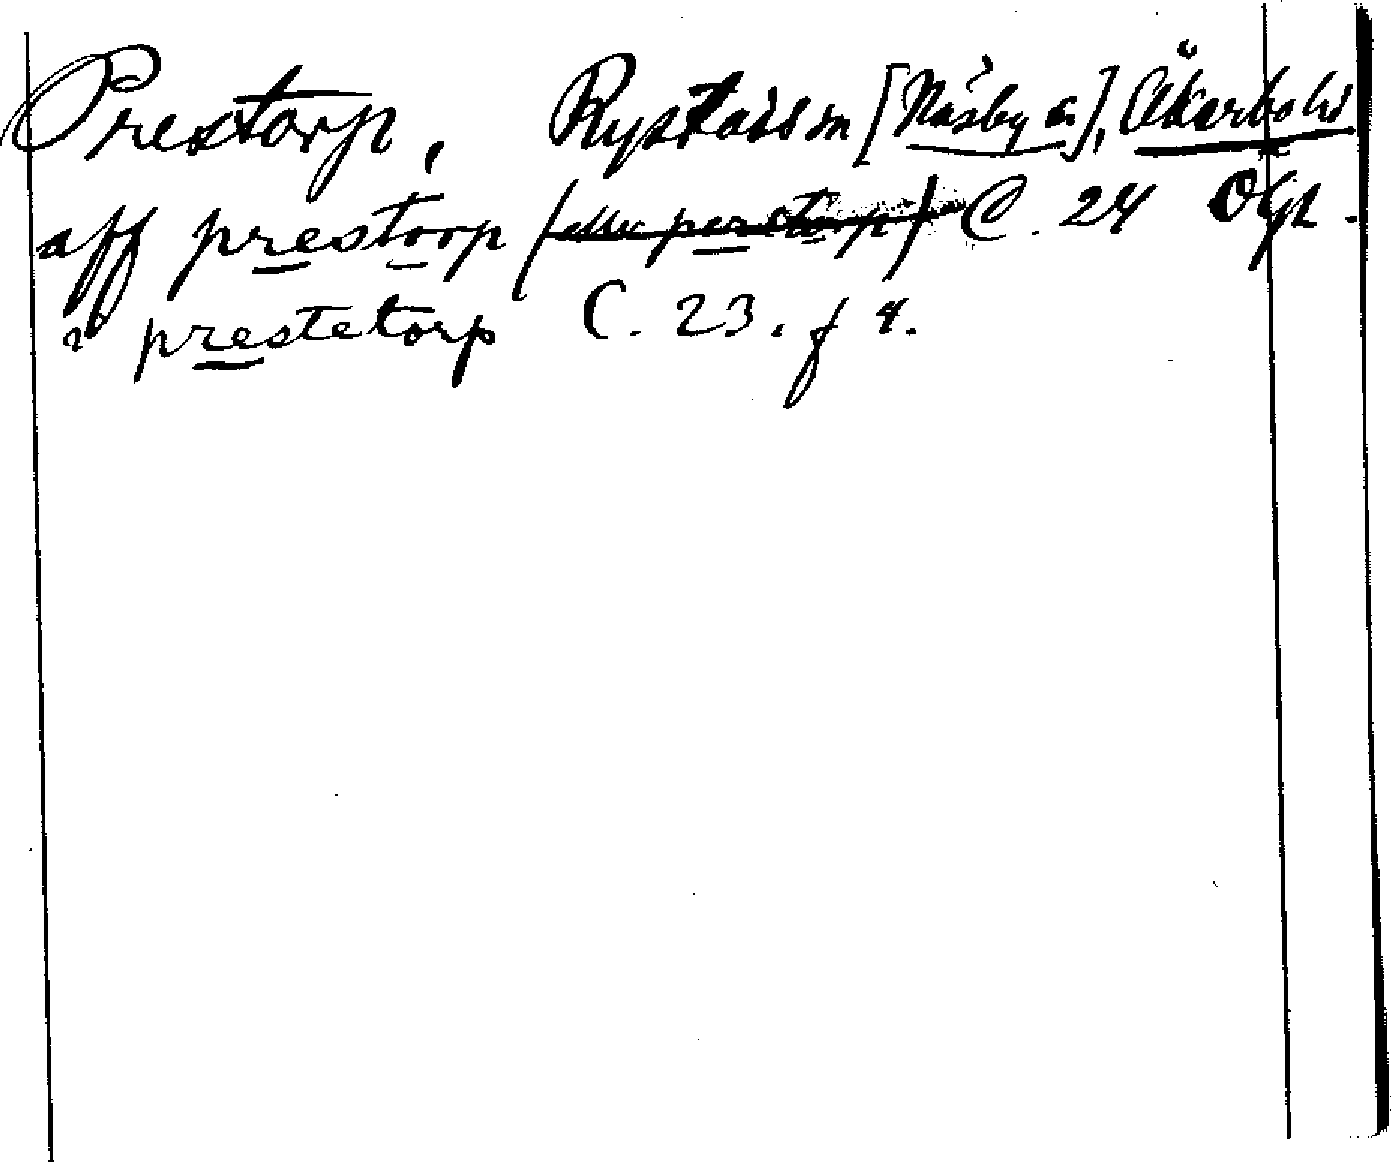 Prestorp, Rystads sn [Näsby ä.], Åkerbo hd
aff prestorp (eller perstorp) C. 24 Ögl.
i prestetorp C. 23. f 4.